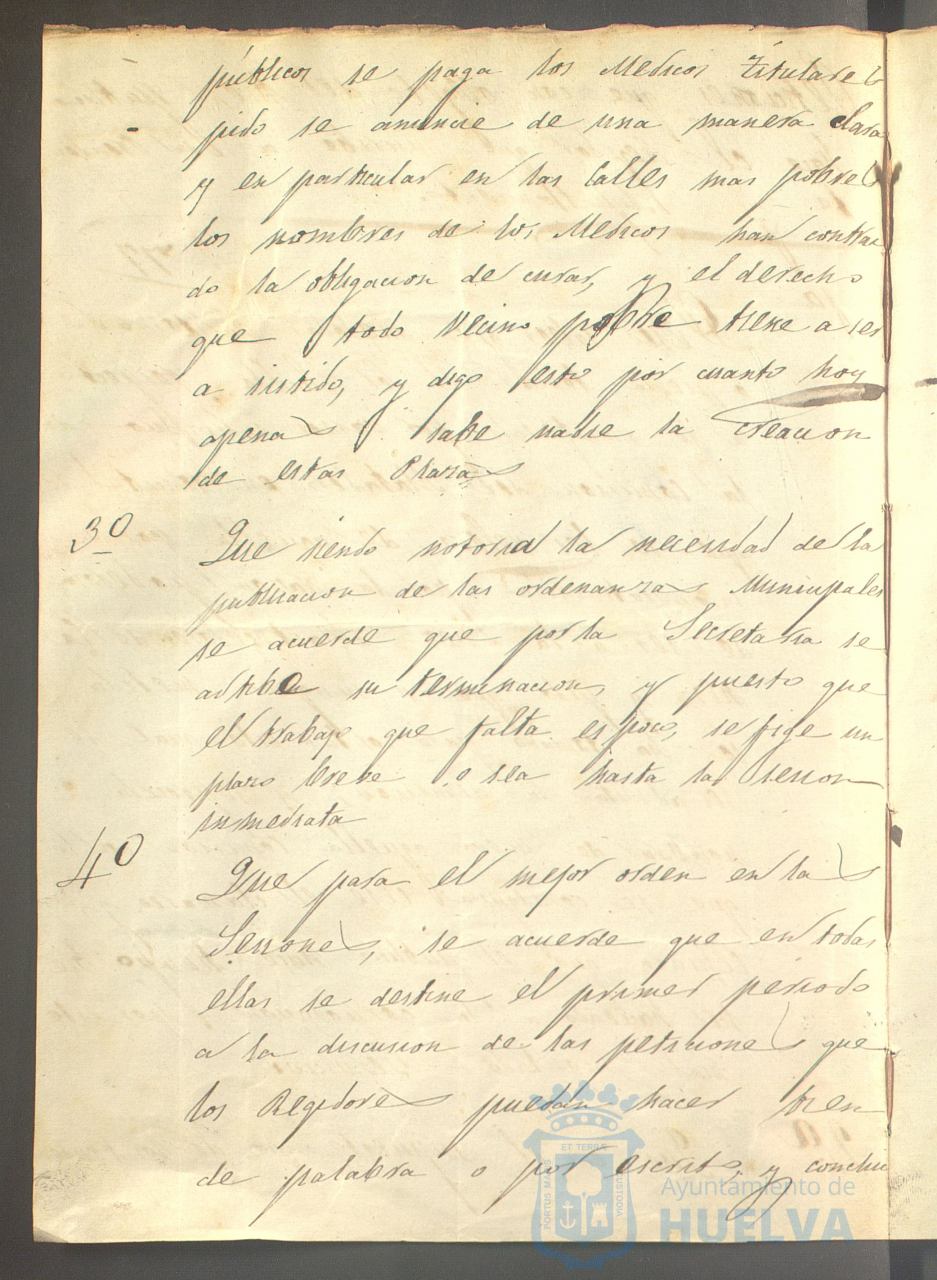 públicos se paga los Medicos titulares
pido se anuncie de una manera clara
y en particular en las Calles mas pobres
los nombres de los Medicos han contrai
do la obligacion de curar, y el derecho
que todo Vecino pobre tiene a ser
a sistido, y digo esto por cuanto hoy
apenas sabe nadie la creacion
de estas Plazas
3º
Que siendo notoria la necesidad de la
publicacion de las ordenanzas Municipales
se acuerde que por la Secretaria se
active su terminacion, y puesto que
el trabajo que falta es poco, se fige un
plazo breve o sea hasta la sesion
inmediata
4º
Que para el mejor orden en las
Sesiones, se acuerde que en todas
ellas se destine el primer periodo
a la discusion de las peticiones que
los Regidores puedan hacer bien
de palabra o por escrito, y conclui
PORTUS MARIS
ET TERRÆ
CUSTODIA
Ayuntamiento de
HUELVA